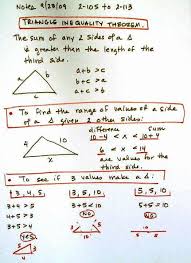 Notes 9/28/09 2-105 to 2-113
TRIANGLE INEQUALITY THEOREM.
The sum of any 2 sides of a Δ
is greater then the length of the
third side.
a+b > c
b+c > a
a+c > b
a c
b
• To find the range of values of a side
of a Δ given 2 other sides:
difference sum
10-4 < x < 10+4
6 < x < 14
are values for the
third side.
4 10
x
• To see if 3 values make a Δ:
3, 4, 5, 3, 5, 10, 5, 5, 10
3+4 > 5
4+5 > 3
3+5 > 4
YES
3 5
4
3+5 > 10
NO
3 5
10
5+5 = 10
NO
5 5
10